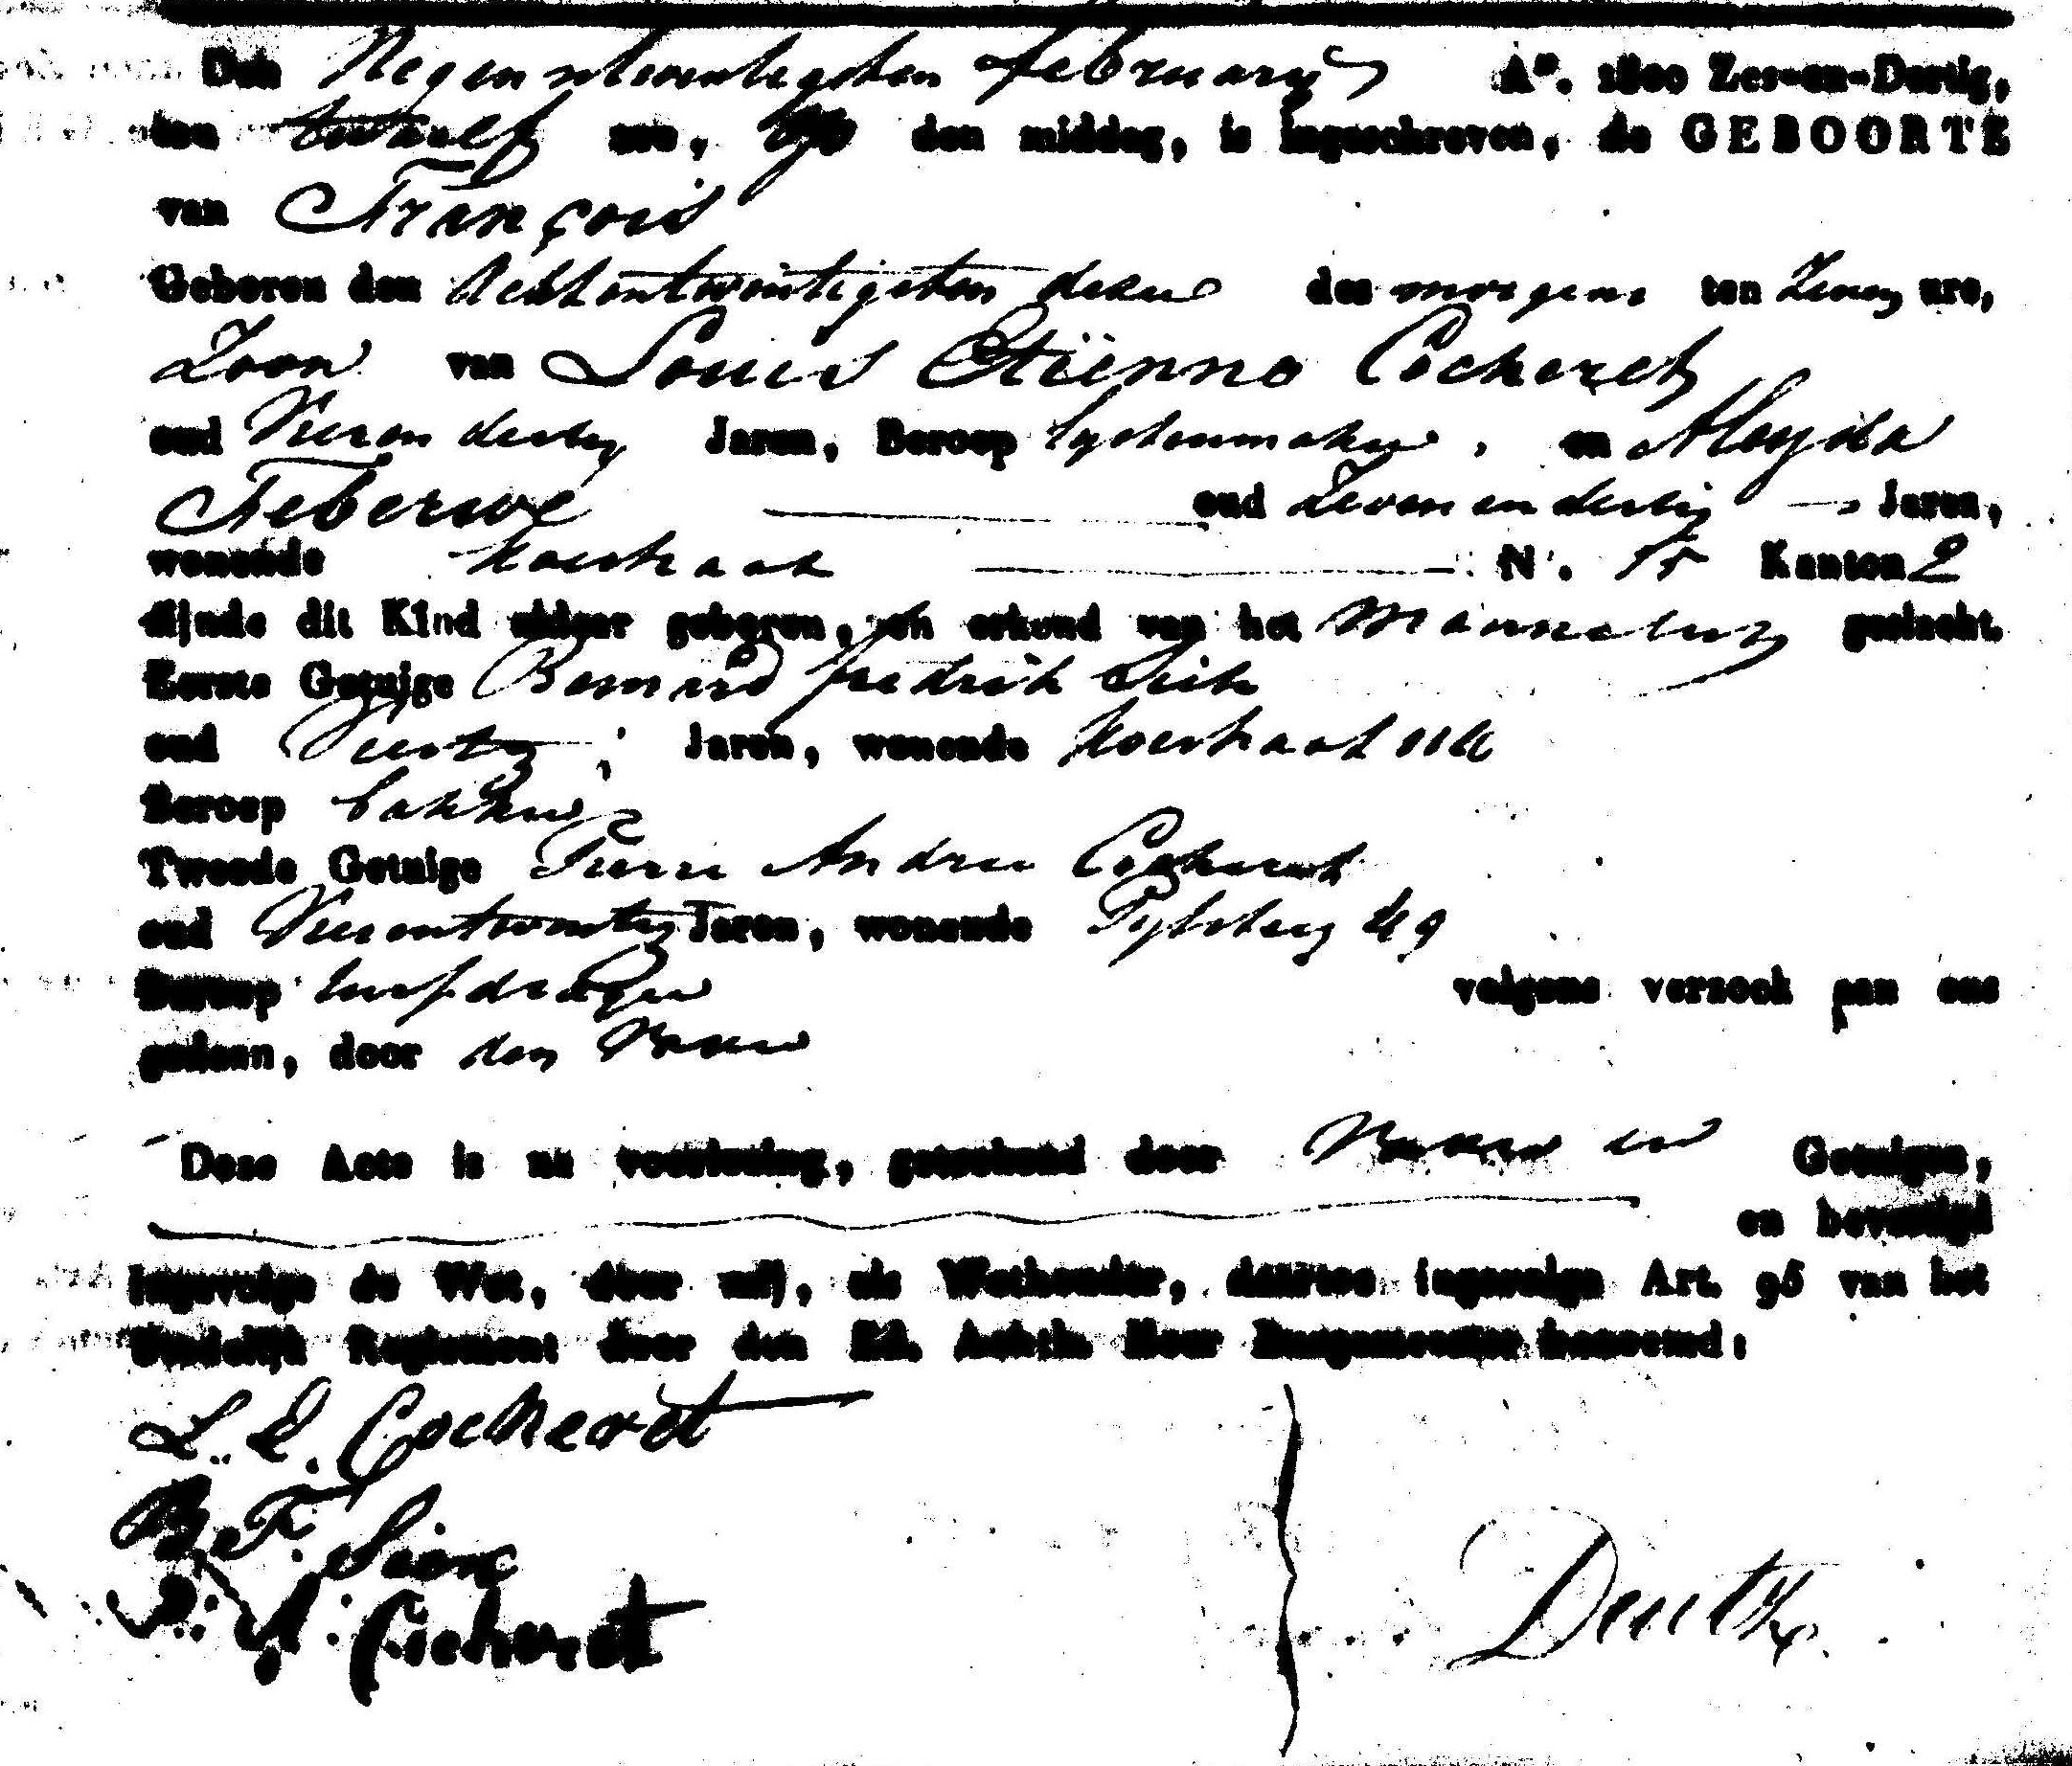 Den Negenentwentigsten february A°. 1800 Zes-en-Dertig,
ten twaalf ure, op den middag, is ingeschreven, de GEBOORTE
van François
Geboren den Achtentwintigsten dezer des morgens ten Zeven ure,
Zoon van Louis Etiënne Cocheret
oud Vierendertig Jaren, Beroep lystenmaker, en Aleyda
Feberwe oud Zevenendertig Jaren,
wonende Koestraat N°. 15 Kanton 2
zijnde dit Kind aldaar geboren, en erkend van het Mannelyk geslacht.
Eerste Getuige Bernard fredrik
oud Veertig Jaren, wonende Koestraat
Beroep bakker
Tweede Getuige Pierre Andre Cocheret
oud Vierentwintig Jaren, wonende Pylsteeg 49
Beroep turfdrager volgens verzoek aan ons
gedaan, door den Vader
Deze Acte is na voorlezing, geteekend door Vader en Getuigen,
en bevestigd
ingevolge de Wet, door mij, als Wethouder, daartoe ingevolge Art. 95 van het
Stedelijk Reglement door den Ed. Achtb. Heer Burgemeester benoemd:
L. E. Cocheret
B. F.
P. A. Cocheret
Deutz.